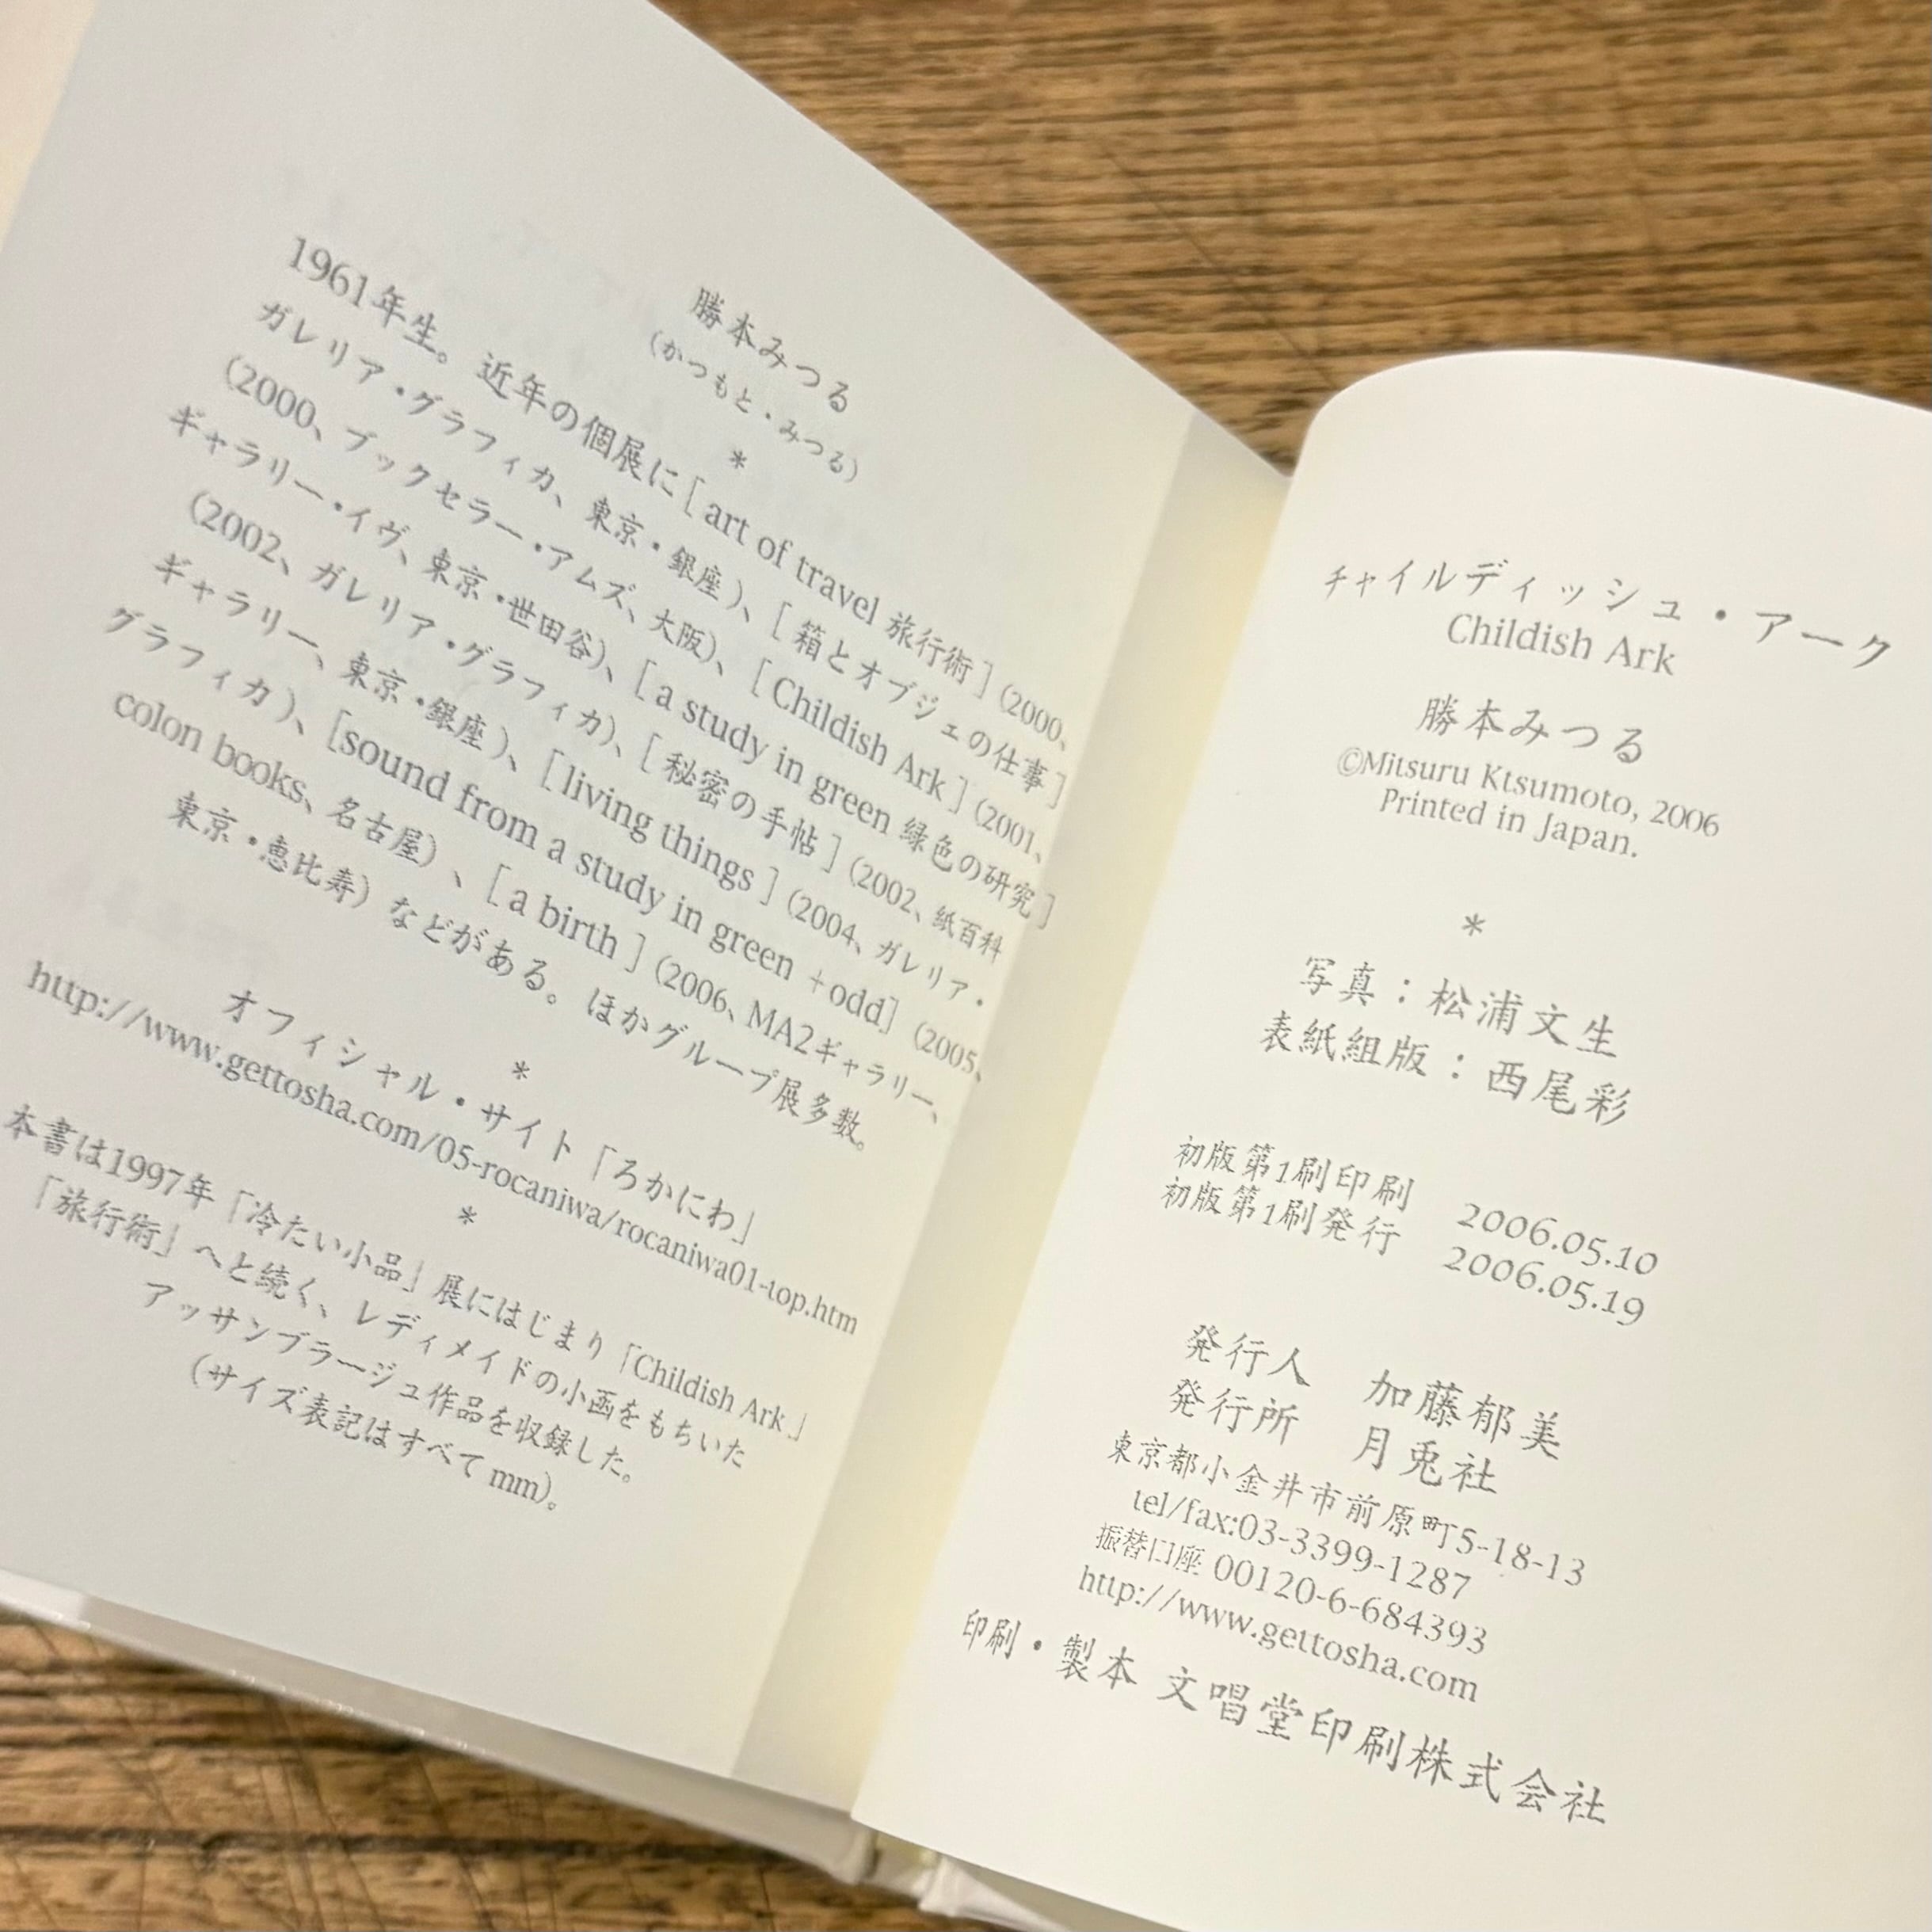 勝本みつる
（かつもと・みつる）
*
1961年生。近年の個展に［art of travel 旅行術］（2000、
ガレリア・グラフィカ、東京・銀座）、［箱とオブジェの仕事］
（2000、ブックセラー・アムズ、大阪）、［Childish Ark］（2001、
ギャラリー・イヴ、東京・世田谷）、［a study in green 緑色の研究］
（2002、ガレリア・グラフィカ）、［秘密の手帖］（2002、紙百科
ギャラリー、東京・銀座）、［living things］（2004、ガレリア・
グラフィカ）、［sound from a study in green +odd］（2005、
colon books、名古屋）、［a birth］（2006、MA2ギャラリー、
東京・恵比寿）などがある。ほかグループ展多数。
*
オフィシャル・サイト「ろかにわ」
http://www.gettosha.com/05-rocaniwa/rocaniwa01-top.htm
*
本書は1997年「冷たい小品」展にはじまり「Childish Ark」
「旅行術」へと続く、レディメイドの小函をもちいた
アッサンブラージュ作品を収録した。
（サイズ表記はすべてmm）。
チャイルディッシュ・アーク
Childish Ark
勝本みつる
©Mitsuru Ktsumoto, 2006
Printed in Japan.
*
写真：松浦文生
表紙組版：西尾彩
初版第1刷印刷 2006.05.10
初版第1刷発行 2006.05.19
発行人 加藤郁美
発行所 月兎社
東京都小金井市前原町5-18-13
tel/fax:03-3399-1287
振替口座 00120-6-684393
http://www.gettosha.com
印刷・製本 文唱堂印刷株式会社